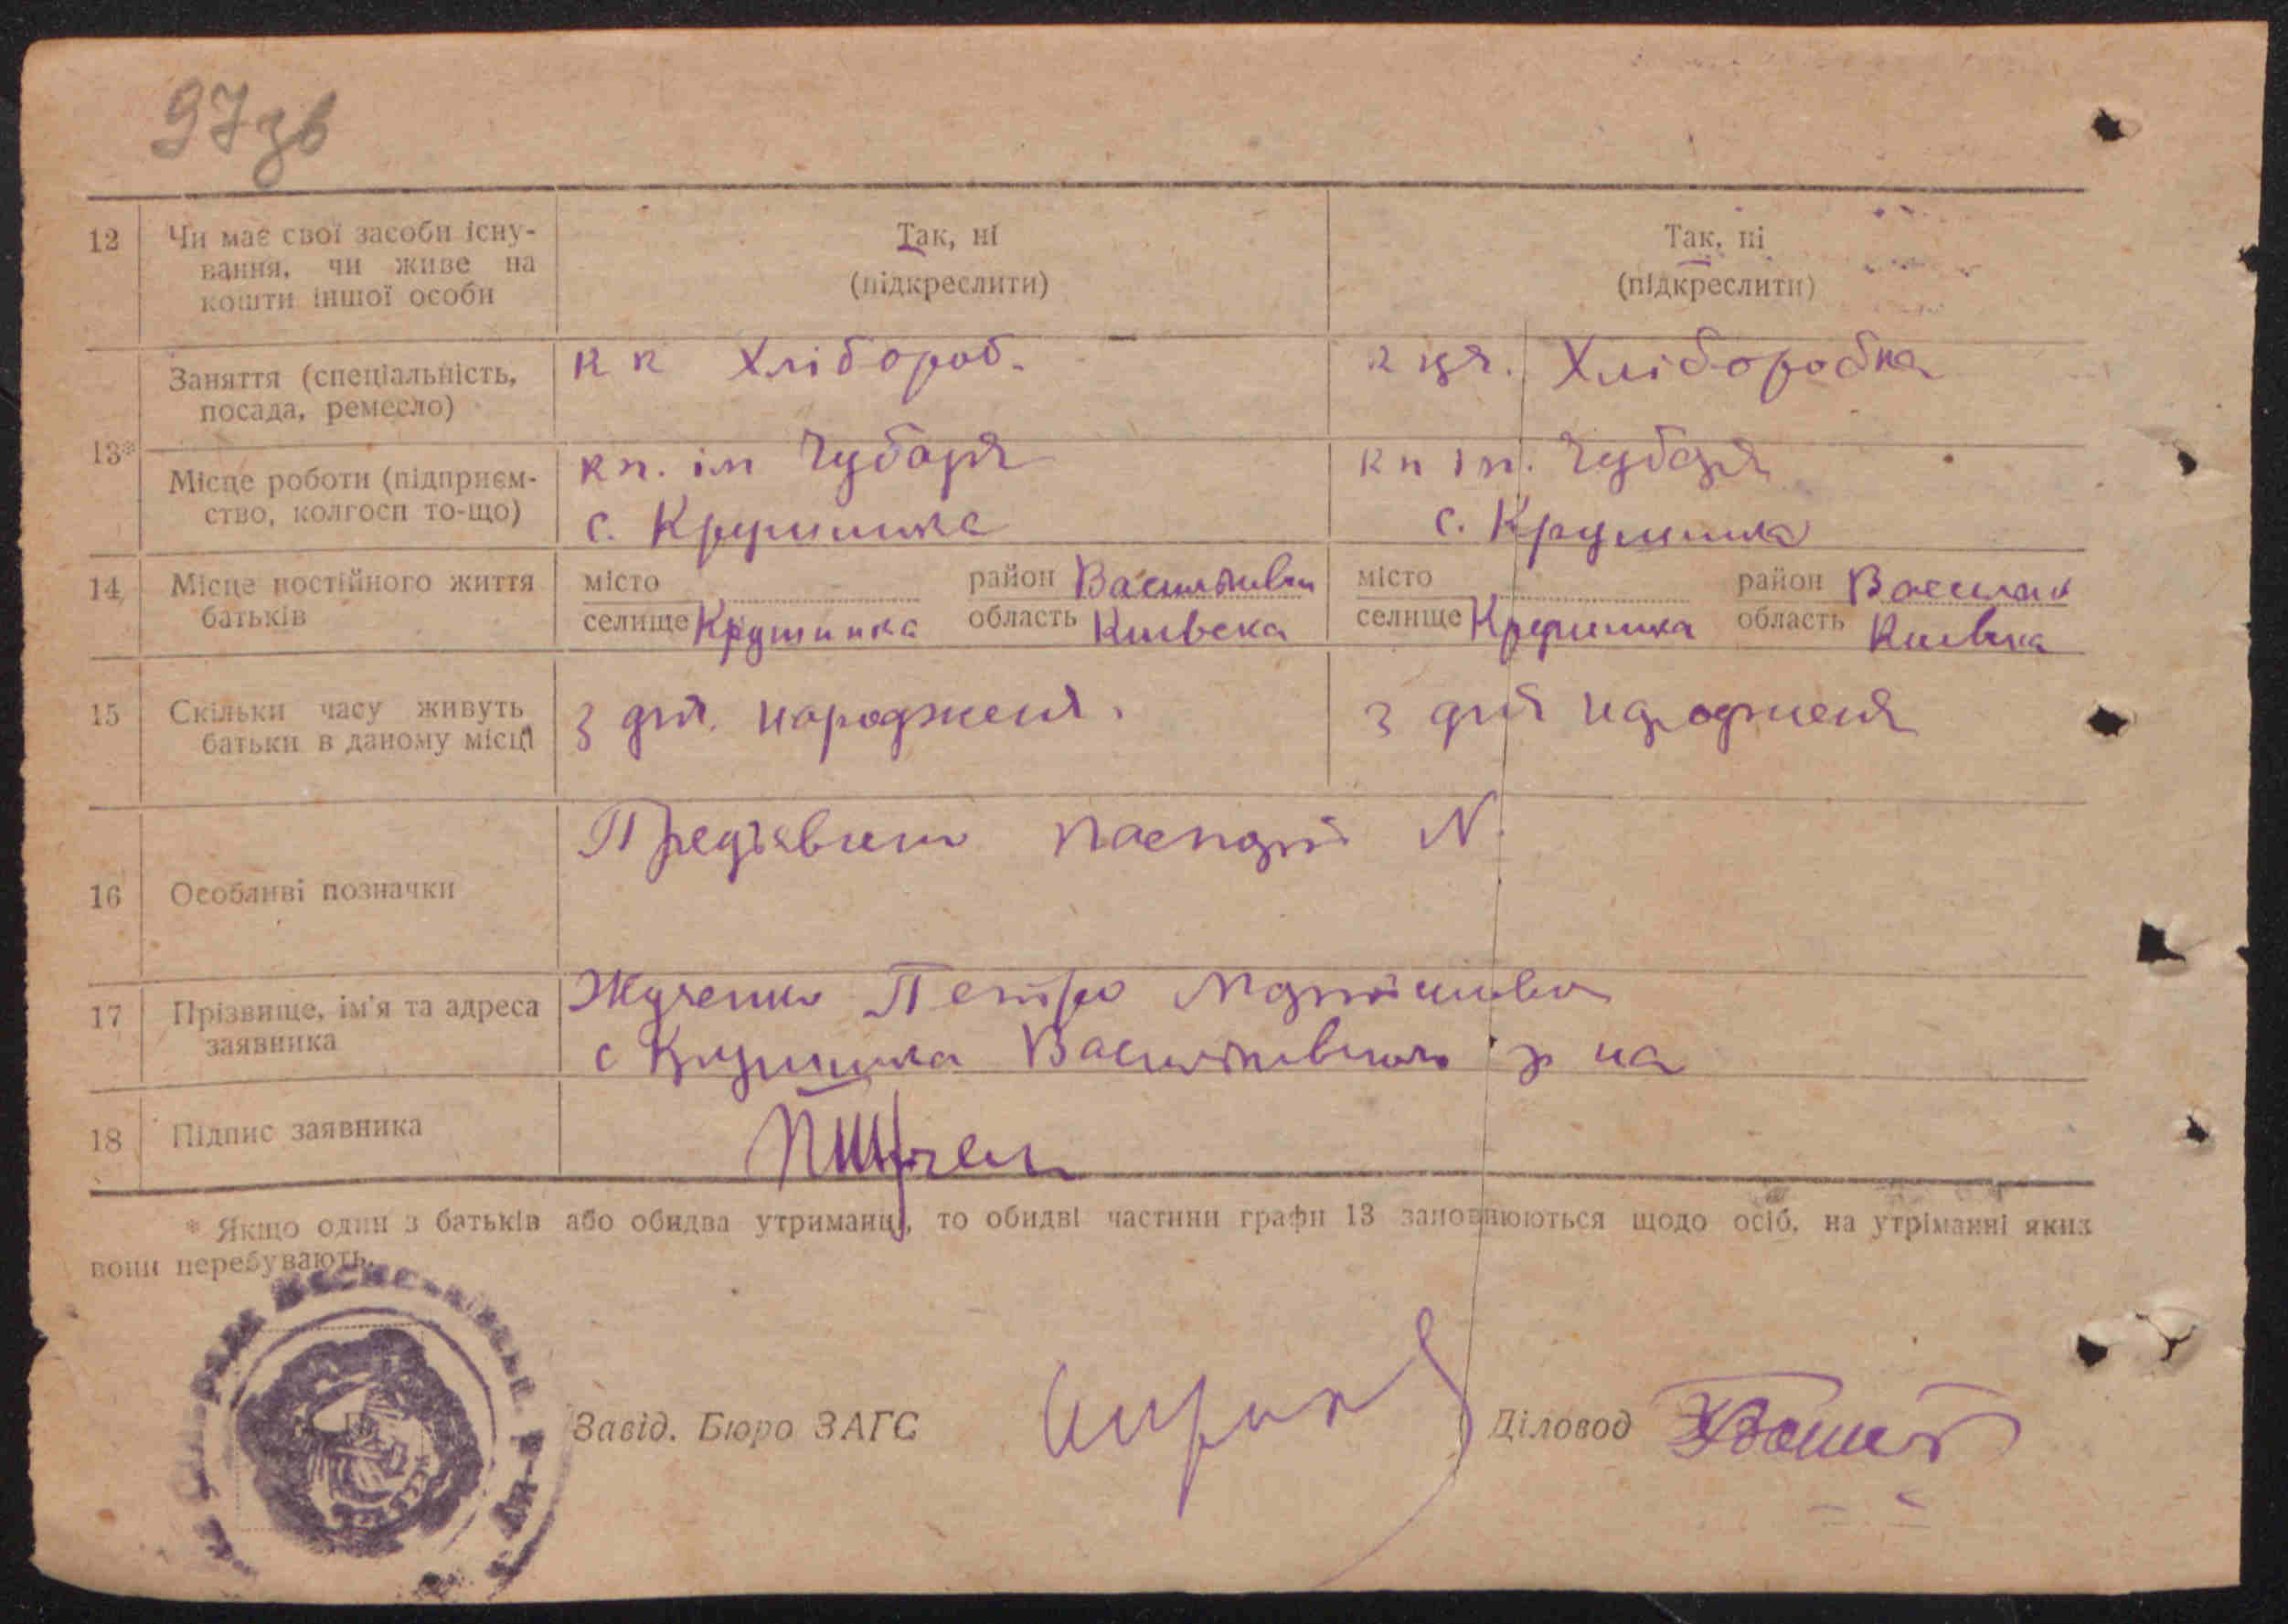 97зв
12 Чи має свої засоби існу-
вання, чи живе на
кошти іншої особи
Так, ні
(підкреслити)
Так, ні
(підкреслити)
13*
Заняття (спеціальність,
посада, ремесло)
кк Хлібороб.
Хліборобка
Місце роботи (підприєм-
ство, колгосп то-що)
кп. ім Чубаря
с. Крушинка
кп ім. Чубаря
с. Крушинка
14 Місце постійного життя
батьків
місто район Васильків
селище Крушинка область Київска
місто район Васильк
селище Крушинка область Київска
15 Скільки часу живуть
батьки в даному місці
З дня народженя.
З дня народженя
16 Особливі позначки
Предъявлено паспорт N.
17 Прізвище, ім'я та адреса
заявника
Жученко Петро
с Крушинка Васильківського р на
18 Підпис заявника
* Якщо один з батьків або обидва утриманці, то обидві частини графи 13 заповнюються щодо осіб, на утріманні яких
вони перебувають.
Завід. Бюро ЗАГС
Діловод